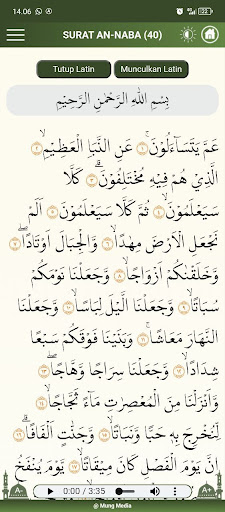 14.06
22
SURAT AN-NABA (40)
Tutup Latin Munculkan Latin
بِسْمِ اللّٰهِ الرَّحْمٰنِ الرَّحِيْمِ
عَمَّ يَتَسَاۤءَلُوْنَۚ ١ عَنِ النَّبَاِ الْعَظِيْمِۙ ٢
الَّذِيْ هُمْ فِيْهِ مُخْتَلِفُوْنَۗ ٣ كَلَّا
سَيَعْلَمُوْنَۙ ٤ ثُمَّ كَلَّا سَيَعْلَمُوْنَ ٥ اَلَمْ
نَجْعَلِ الْاَرْضَ مِهٰدًاۙ ٦ وَّالْجِبَالَ اَوْتَادًاۖ ٧
وَّخَلَقْنٰكُمْ اَزْوَاجًاۙ ٨ وَّجَعَلْنَا نَوْمَكُمْ
سُبَاتًاۙ ٩ وَّجَعَلْنَا الَّيْلَ لِبَاسًاۙ ١٠ وَّجَعَلْنَا
النَّهَارَ مَعَاشًاۚ ١١ وَبَنَيْنَا فَوْقَكُمْ سَبْعًا
شِدَادًاۙ ١٢ وَّجَعَلْنَا سِرَاجًا وَّهَّاجًاۖ ١٣
وَّاَنْزَلْنَا مِنَ الْمُعْصِرٰتِ مَاۤءً ثَجَّاجًاۙ ١٤
لِّنُخْرِجَ بِهٖ حَبًّا وَّنَبَاتًاۙ ١٥ وَّجَنّٰتٍ اَلْفَافًاۗ ١٦
اِنَّ يَوْمَ الْفَصْلِ كَانَ مِيْقَاتًاۙ ١٧ يَّوْمَ يُنْفَخُ
0:00 / 3:35
@ Mung Media